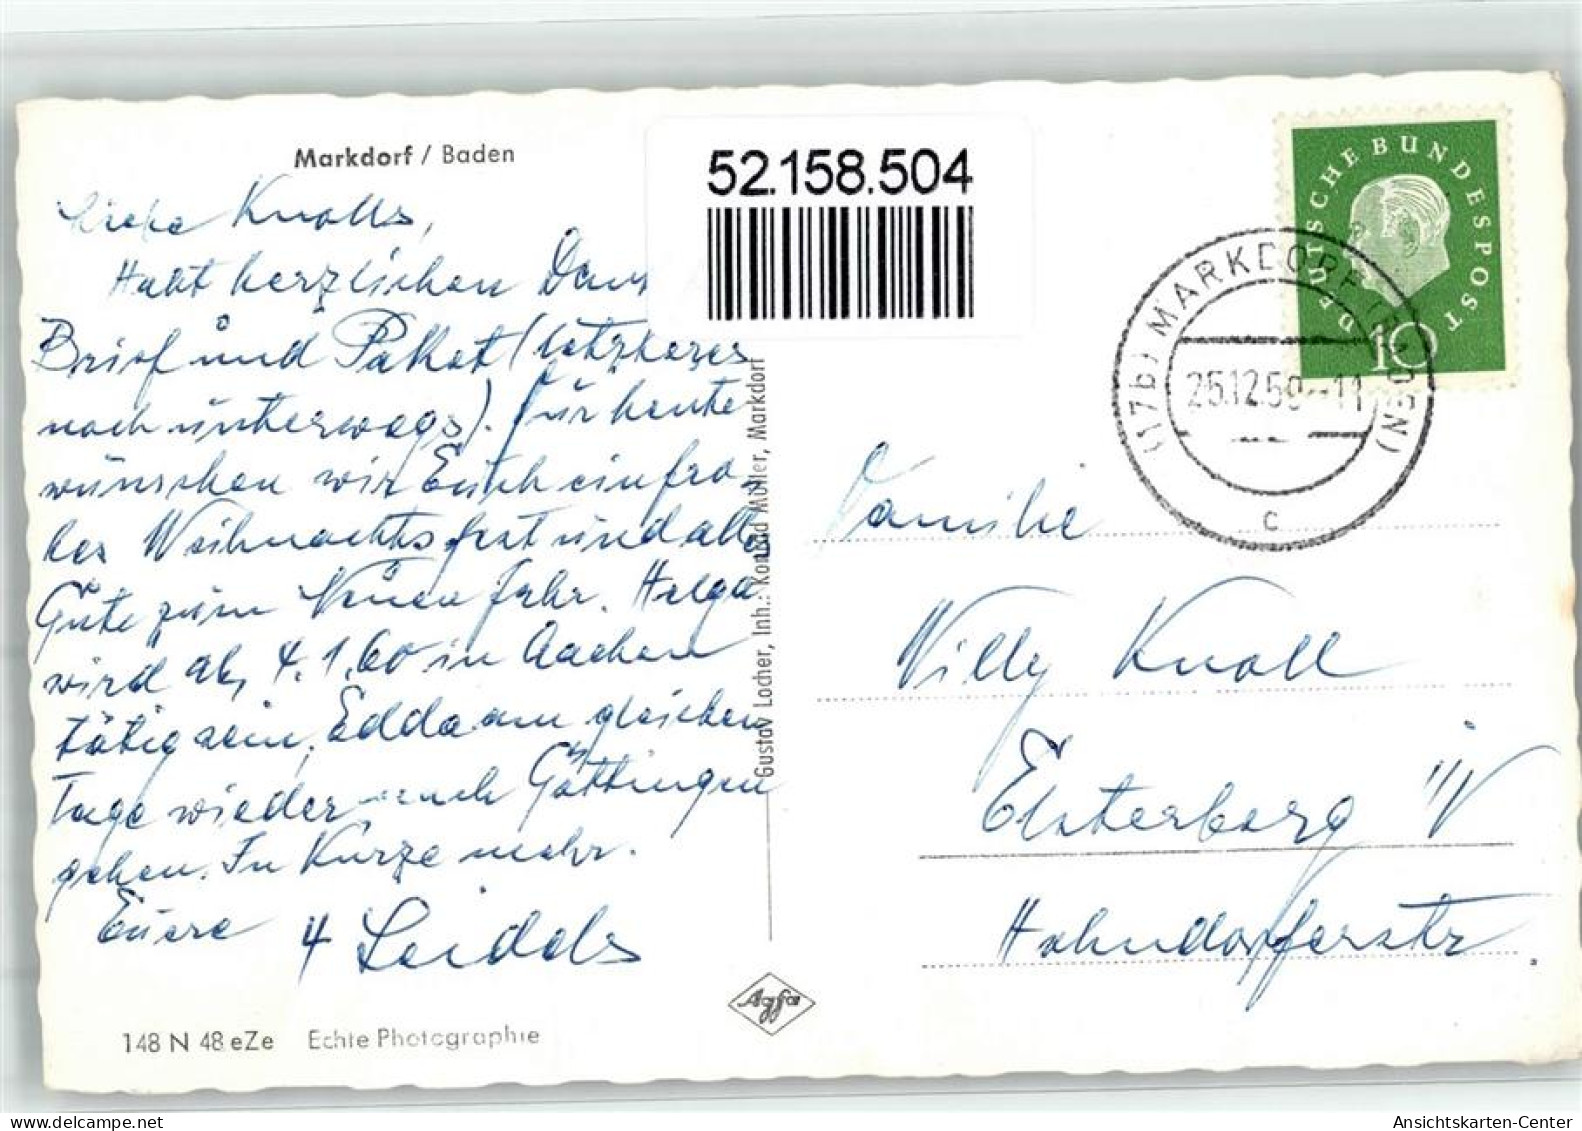 Markdorf / Baden
Liebe Knolls,
Habt herzlichen Dank
Brief und Paket (letzteres
noch unterwegs). Für heute
wünschen wir Euch ein fro-
hes Weihnachtsfest und alles
Gute zum Neuen Jahr. Helga
wird ab 4.1.60 in Aachen
tätig sein, Edda am gleichen
Tage wieder nach Göttingen
gehen. In Kürze mehr.
Eure 4 Seidels
148 N 48 eZe Echte Photographie
52.158.504
Gustav Locher, Inh.: Konrad Müller, Markdorf
Agfa
DEUTSCHE BUNDESPOST
10
(17b) MARKDORF (BADEN)
25.12.59-11
c
Familie
Willy Knoll
Elsterberg i/V
Hohndorferstr.
Ansichtskarten-Center